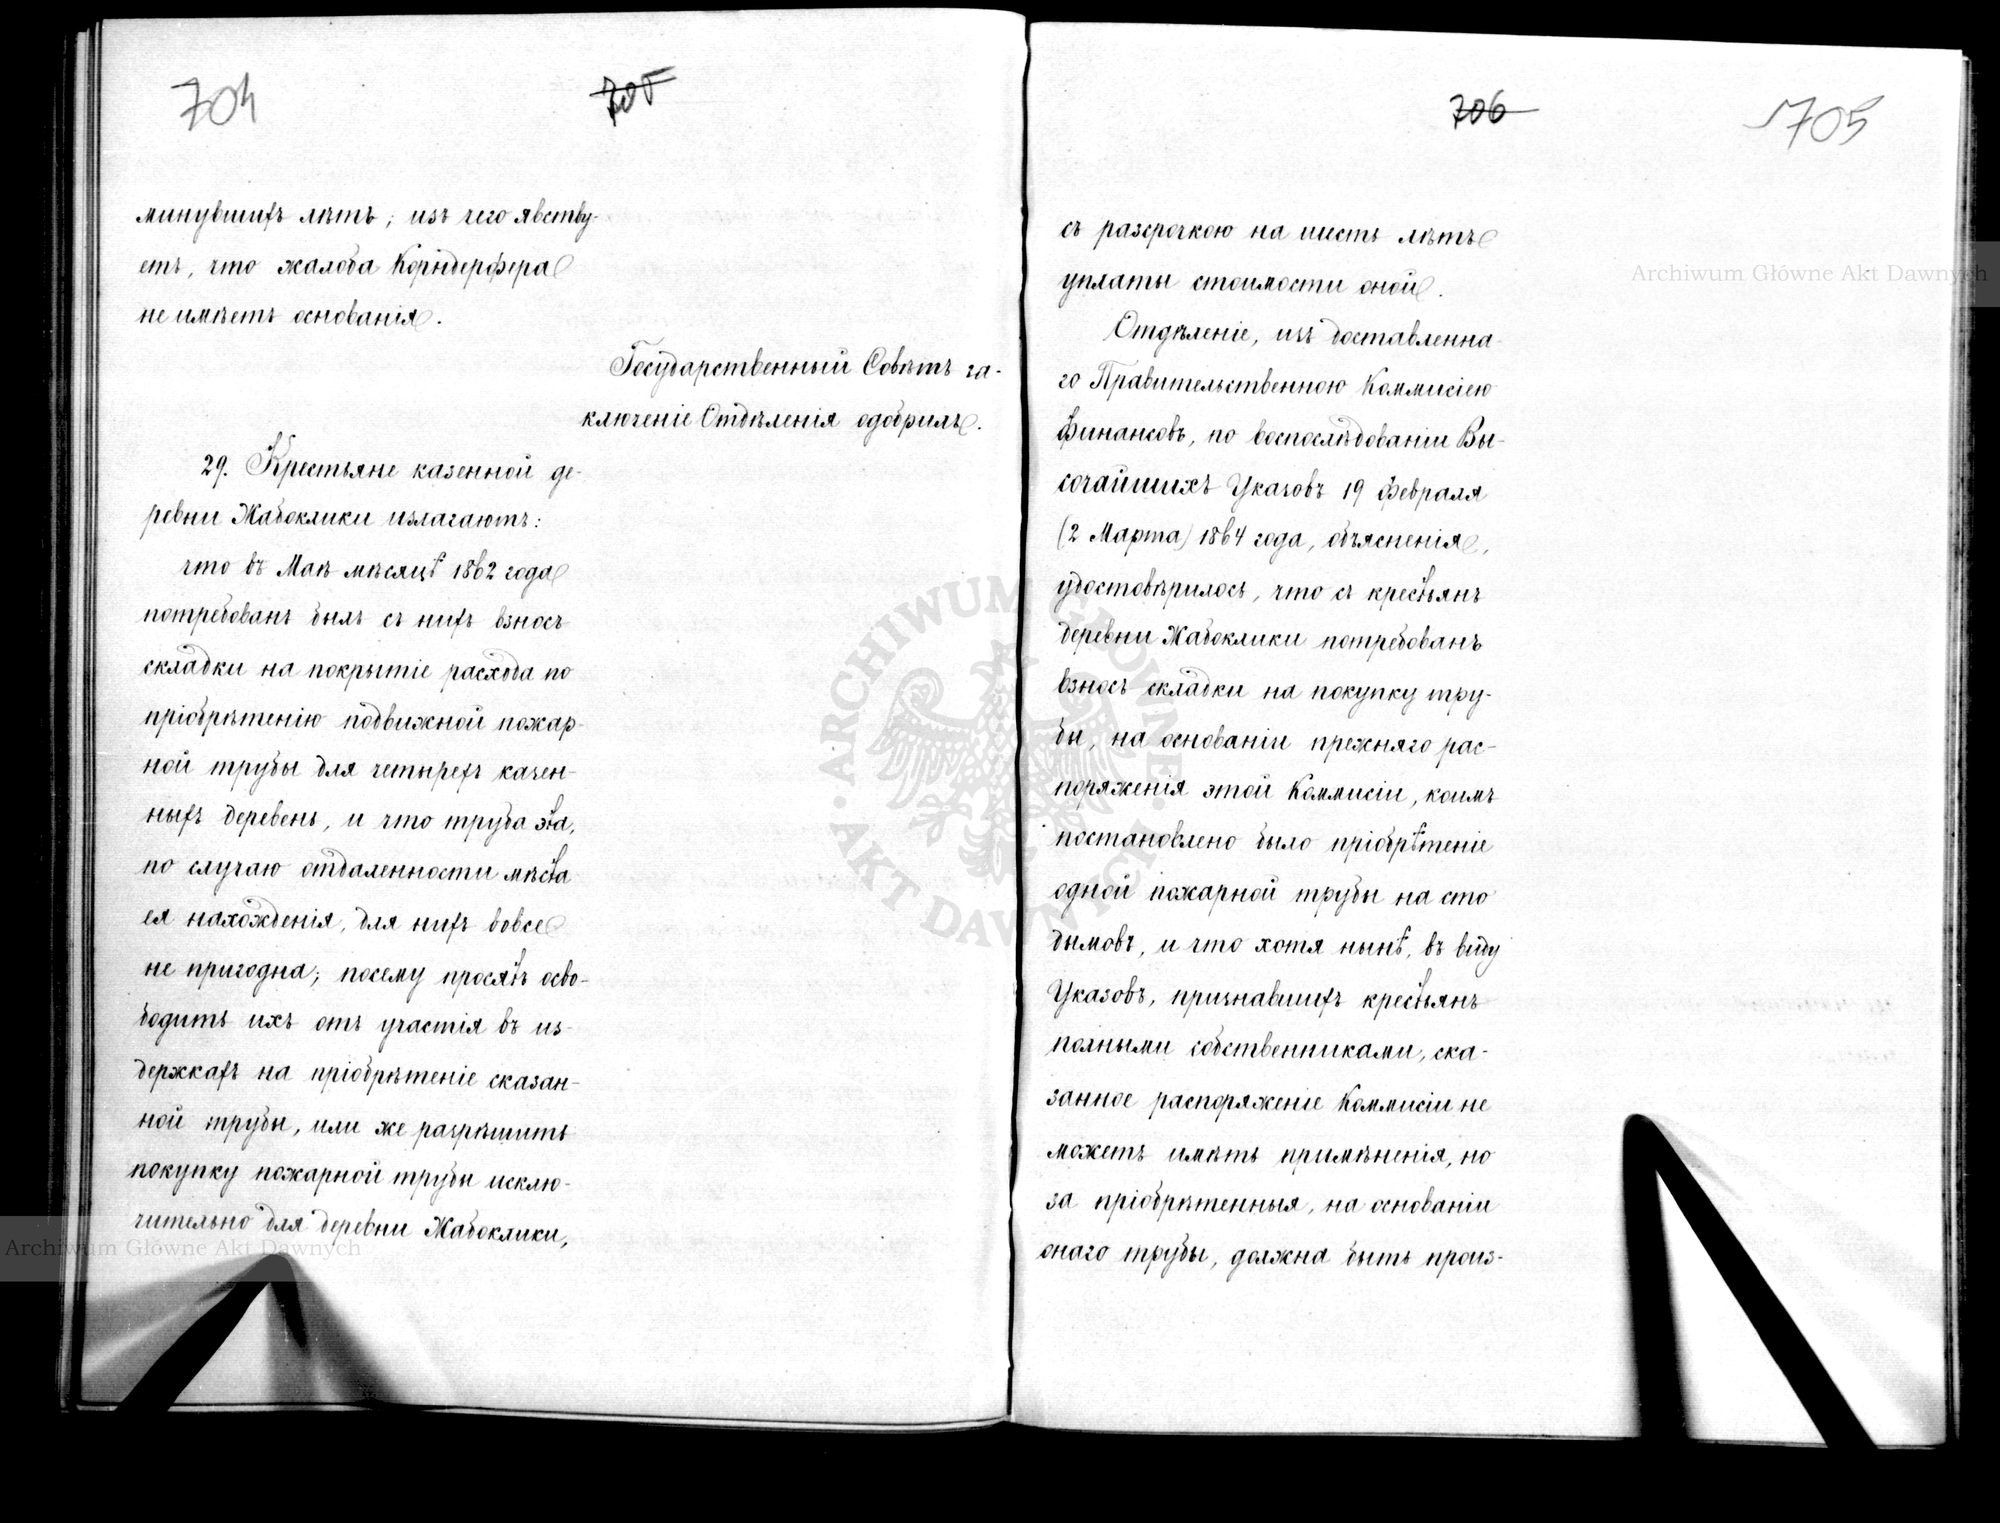 704
705
минувшихъ лѣтъ; изъ чего явству-
етъ, что жалоба Корндерфера
не имѣетъ основанія.
Государственный Совѣтъ за-
ключеніе Отдѣленія одобрилъ.
29. Крестьяне казенной де-
ревни Жабоклики излагаютъ:
что въ Маѣ мѣсяцѣ 1862 года
потребованъ былъ съ нихъ взносъ
складки на покрытіе расхода по
пріобрѣтенію подвижной пожар-
ной трубы для четырехъ казен-
ныхъ деревень, и что труба эта,
по случаю отдаленности мѣста
ея нахожденія, для нихъ вовсе
не пригодна; посему просятъ осво-
бодить ихъ отъ участія въ из-
держкахъ на пріобрѣтеніе сказан-
ной трубы, или же разрѣшить
покупку пожарной трубы исклю-
чительно для деревни Жабоклики,
706
705
съ разсрочкою на шесть лѣтъ
уплаты стоимости оной.
Отдѣленіе, изъ доставленна-
го Правительственною Коммисіею
Финансовъ, по воспослѣдованіи Вы-
сочайшихъ Указовъ 19 Февраля
(2 Марта) 1864 года, объясненія,
удостовѣрилось, что съ крестьянъ
деревни Жабоклики потребованъ
взносъ складки на покупку тру-
бы, на основаніи прежняго рас-
поряженія этой Коммисіи, коимъ
постановлено было пріобрѣтеніе
одной пожарной трубы на сто
дымовъ, и что хотя нынѣ, въ виду
Указовъ, признавшихъ крестьянъ
полными собственниками, ска-
занное распоряженіе Коммисіи не
можетъ имѣть примѣненія, но
за пріобрѣтенныя, на основаніи
онаго трубы, должна быть произ-
Archiwum Główne Akt Dawnych
Archiwum Główne Akt Dawnych
ARCHIWUM GŁÓWNE AKT DAWNYCH